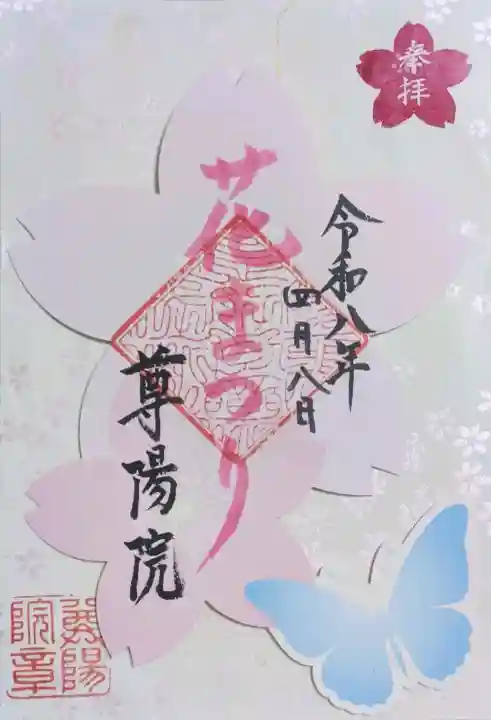 奉拝
令和八年
四月八日
花まつり
尊陽院
尊陽
院章